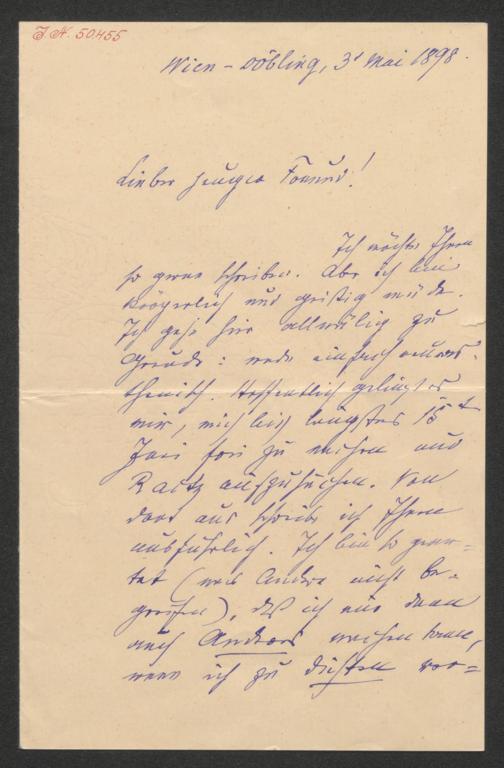 J.N. 50.455
Wien-Döbling, 31 Mai 1898.
Lieber junger Freund!
Ich möchte Ihnen
so gerne schreiben. Aber ich bin
körperlich und geistig müde.
Ich gehe hier allmälig zu
Grunde: werde einfach neuras-
thenisch. Hoffentlich gelingt es
mir, mich bis längstens 15t
Juni frei zu machen und
Raitz aufzusuchen. Von
dort aus schreibe ich Ihnen
ausführlich. Ich bin so gear-
tet (was Andre nicht be-
greifen), daß ich nur dann
auch Anderes machen kann,
wenn ich zu dichten ver=